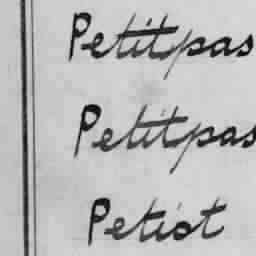 Petitpas
Petitpas
Petiot